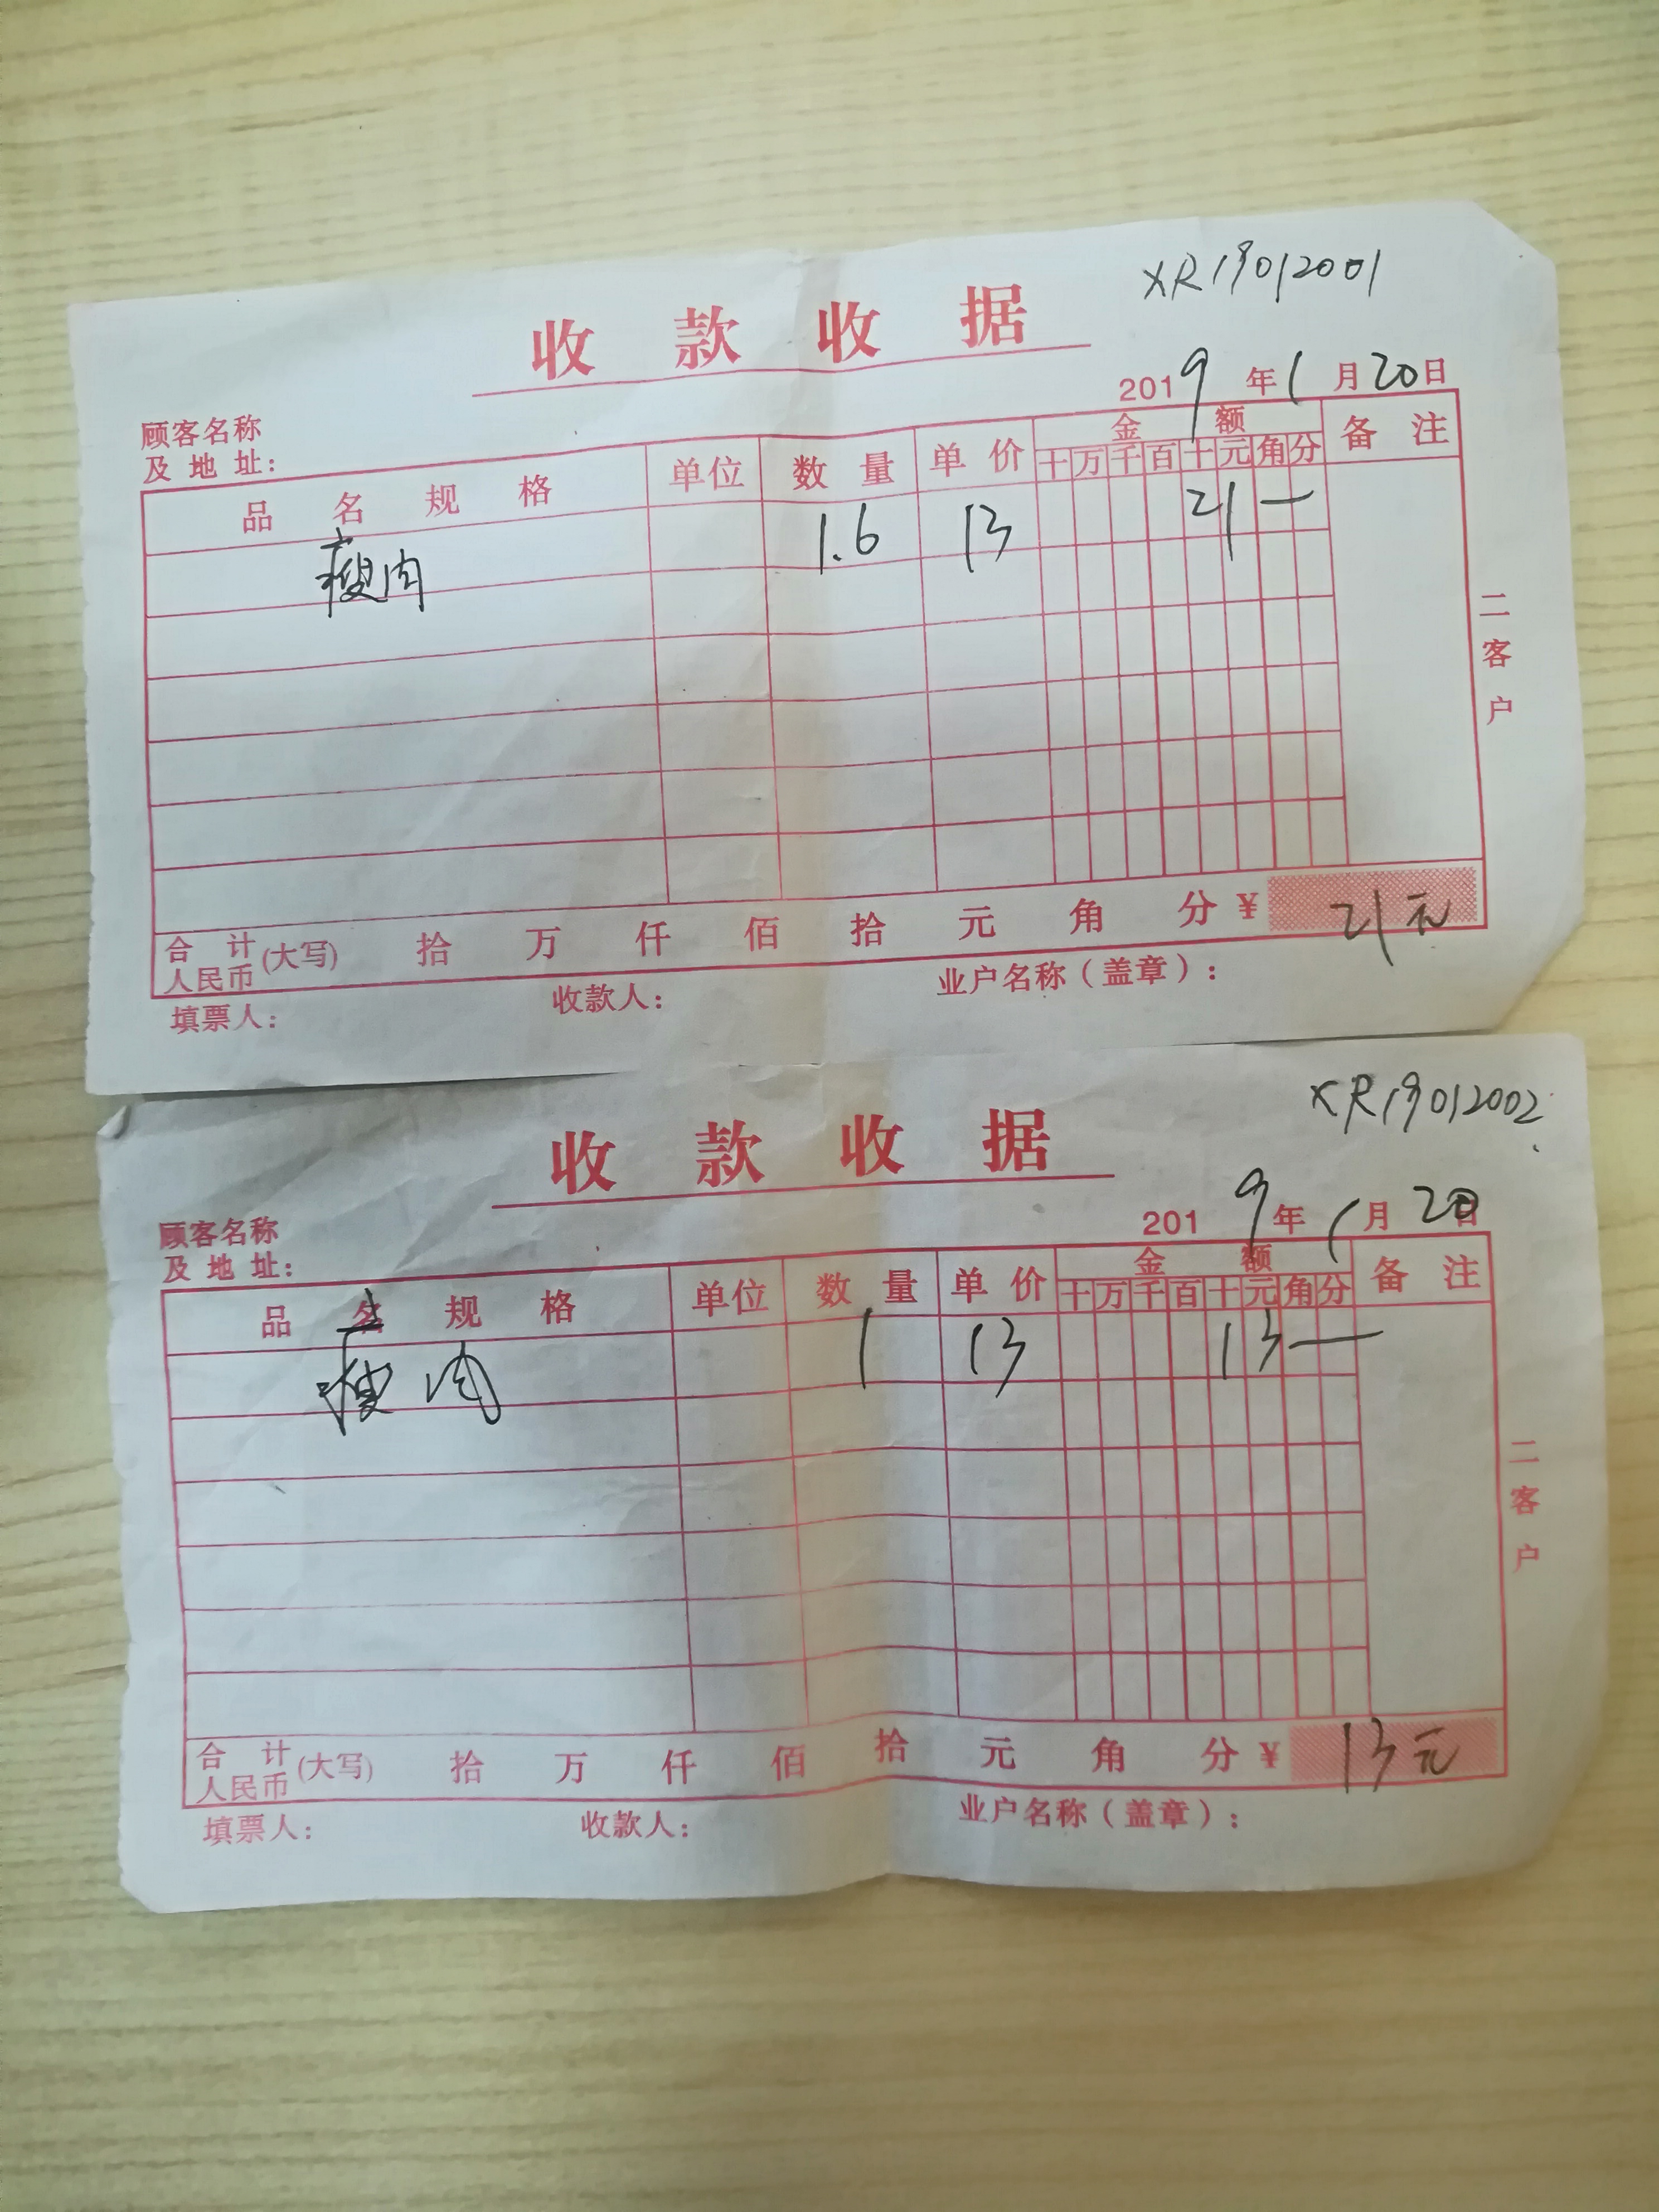 XR19012001
收款收据
2019年1月20日
顾客名称
及地址：
品名规格 单位 数量 单价 金额 备注
十万千百十元角分
瘦肉 1.6 13 21—
二客户
合计
人民币(大写) 拾 万 仟 佰 拾 元 角 分 ¥ 21元
填票人： 收款人： 业户名称（盖章）：
XR19012002
收款收据
2019年1月20日
顾客名称
及地址：
品名规格 单位 数量 单价 金额 备注
十万千百十元角分
瘦肉 1 13 13—
二客户
合计
人民币(大写) 拾 万 仟 佰 拾 元 角 分 ¥ 13元
填票人： 收款人： 业户名称（盖章）：